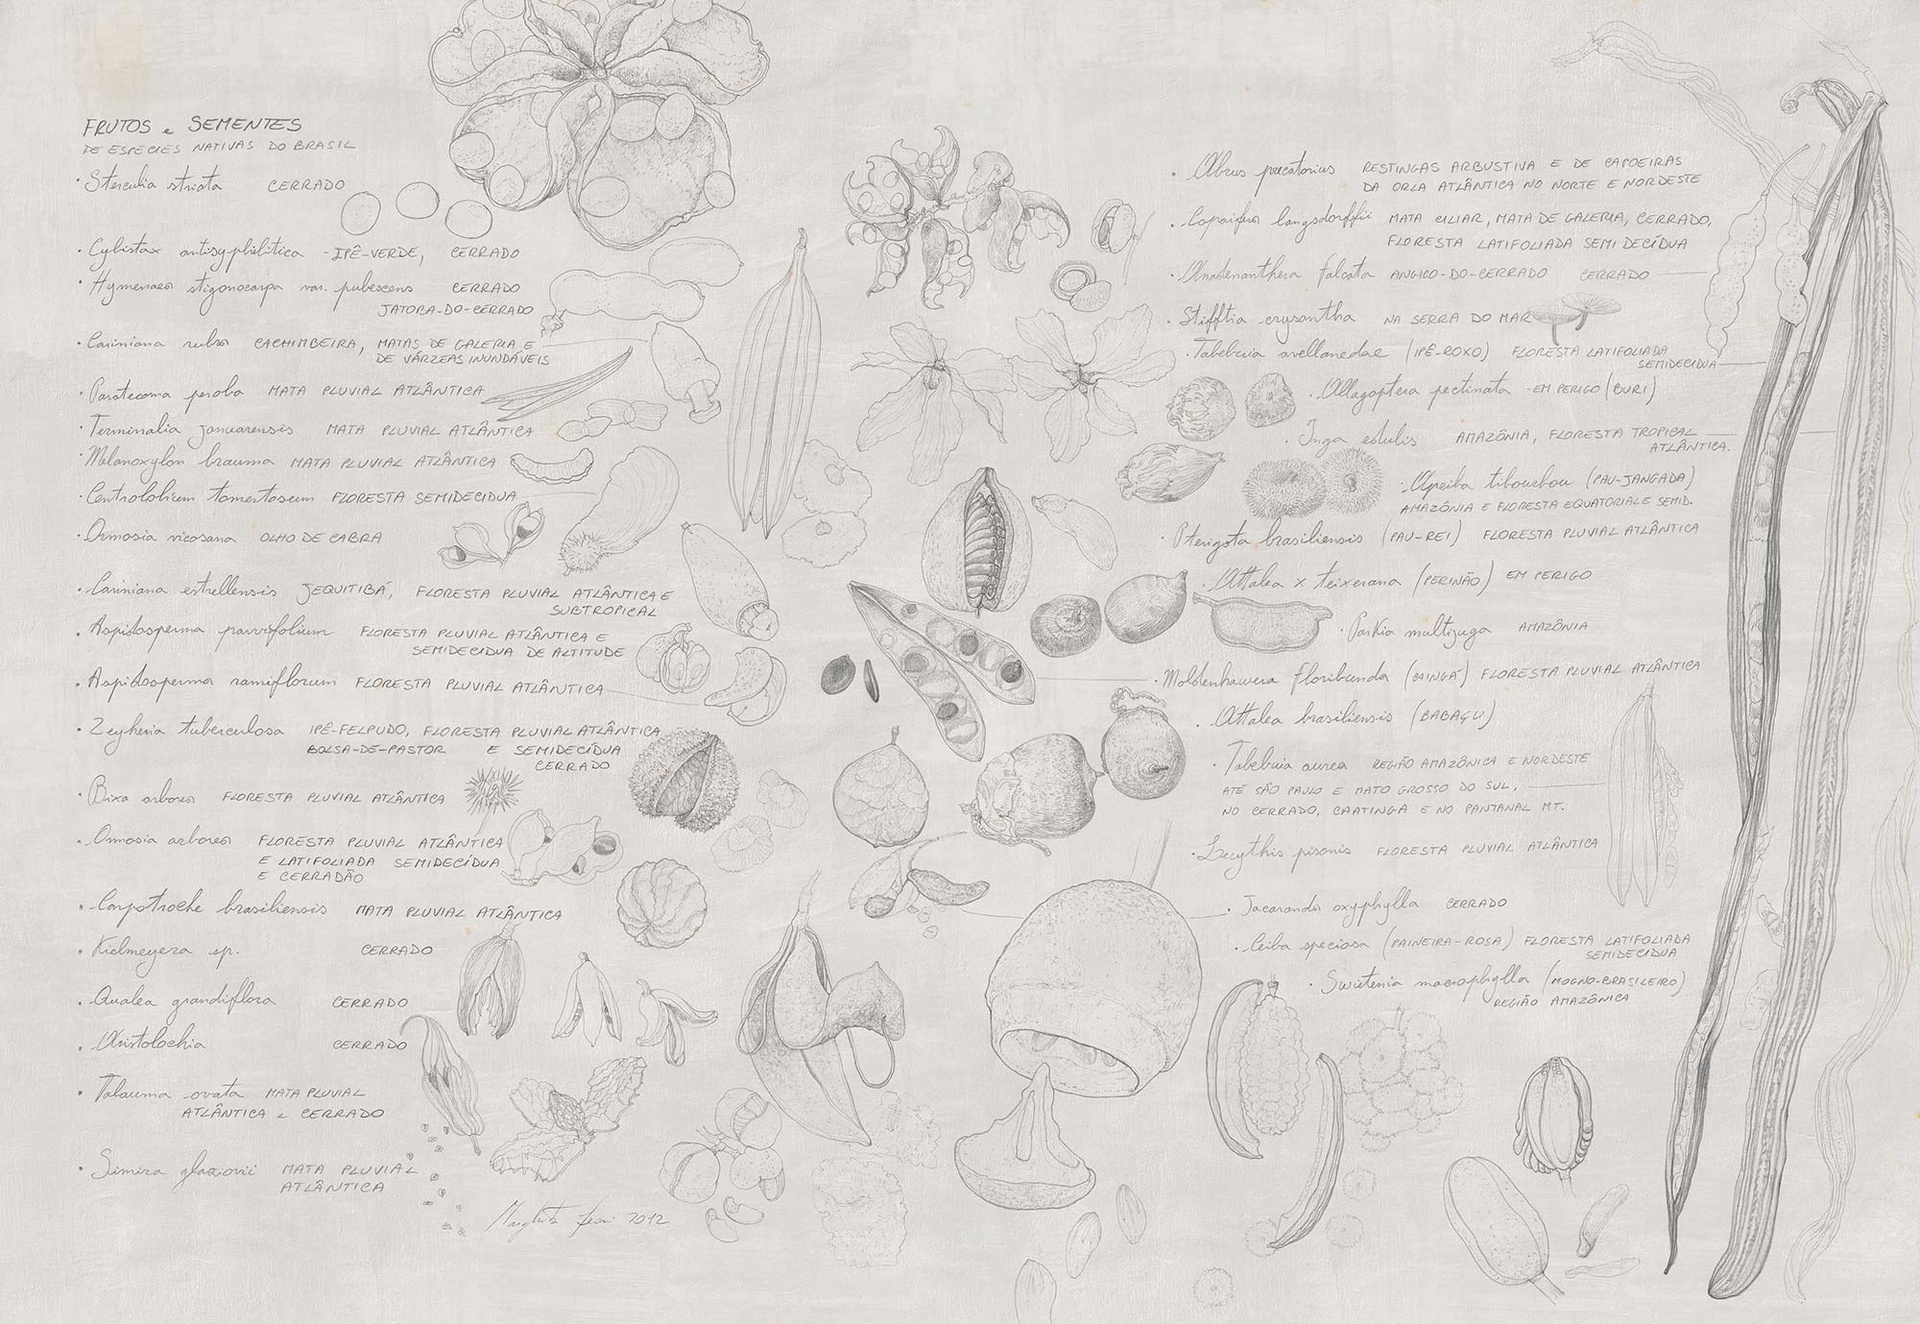 FRUTOS e SEMENTES
DE ESPECIES NATIVAS DO BRASIL
· Sterculia striata CERRADO
· Cybistax antisyphilitica - IPÊ-VERDE, CERRADO
· Hymenaea stigonocarpa var. pubescens CERRADO
JATOBA-DO-CERRADO
· Cariniana rubra CACHIMBEIRA, MATAS DE GALERIA E
DE VÁRZEAS INUNDÁVEIS
· Paratecoma peroba MATA PLUVIAL ATLÂNTICA
· Terminalia januarensis MATA PLUVIAL ATLÂNTICA
· Melanoxylon brauma MATA PLUVIAL ATLÂNTICA
· Centrolobium tomentosum FLORESTA SEMIDECIDUA
· Ormosia vicosana OLHO DE CABRA
· Cariniana estrellensis JEQUITIBÁ, FLORESTA PLUVIAL ATLÂNTICA E
SUBTROPICAL
· Aspidosperma parvifolium FLORESTA PLUVIAL ATLÂNTICA E
SEMIDECIDUA DE ALTITUDE
· Aspidosperma ramiflorum FLORESTA PLUVIAL ATLÂNTICA
· Zeyheria tuberculosa IPÊ-FELPUDO, FLORESTA PLUVIAL ATLÂNTICA
BOLSA-DE-PASTOR E SEMIDECÍDUA
CERRADO
· Bixa arborea FLORESTA PLUVIAL ATLÂNTICA
· Ormosia arborea FLORESTA PLUVIAL ATLÂNTICA
E LATIFOLIADA SEMIDECÍDUA
E CERRADÃO
· Carpotroche brasiliensis MATA PLUVIAL ATLÂNTICA
· Kielmeyera sp. CERRADO
· Qualea grandiflora CERRADO
· Aristolochia CERRADO
· Talauma ovata MATA PLUVIAL
ATLÂNTICA e CERRADO
· Simira glaziovii MATA PLUVIAL
ATLÂNTICA
2012
· Abrus precatorius RESTINGAS ARBUSTIVA E DE CAPOEIRAS
DA ORLA ATLÂNTICA NO NORTE E NORDESTE
· Copaifera langsdorffii MATA CILIAR, MATA DE GALERIA, CERRADO,
FLORESTA LATIFOLIADA SEMI DECÍDUA
· Anadenanthera falcata ANGICO-DO-CERRADO CERRADO
· Stifftia crysantha NA SERRA DO MAR
· Tabebuia avellanedae (IPÊ-ROXO) FLORESTA LATIFOLIADA
SEMIDECIDUA
· Allagoptera pectinata - EM PERIGO (BURI)
· Inga edulis AMAZÔNIA, FLORESTA TROPICAL
ATLÂNTICA.
· Apeiba tibourbou (PAU-JANGADA)
AMAZÔNIA E FLORESTA EQUATORIAL E SEMID.
· Pterigota brasiliensis (PAU-REI) FLORESTA PLUVIAL ATLÂNTICA
· Attalea x teixerana (PERINÃO) EM PERIGO
· Parkia multijuga AMAZÔNIA
· Moldenhawera floribunda FLORESTA PLUVIAL ATLÂNTICA
· Attalea brasiliensis (BABAÇU)
· Tabebuia aurea REGIÃO AMAZÔNICA E NORDESTE
ATÉ SÃO PAULO E MATO GROSSO DO SUL,
NO CERRADO, CAATINGA E NO PANTANAL MT.
· Lecythis pisonis FLORESTA PLUVIAL ATLÂNTICA
· Jacaranda oxyphylla CERRADO
· Ceiba speciosa (PAINEIRA-ROSA) FLORESTA LATIFOLIADA
SEMIDECIDUA
· Swietenia macrophylla (MOGNO-BRASILEIRO)
REGIÃO AMAZÔNICA